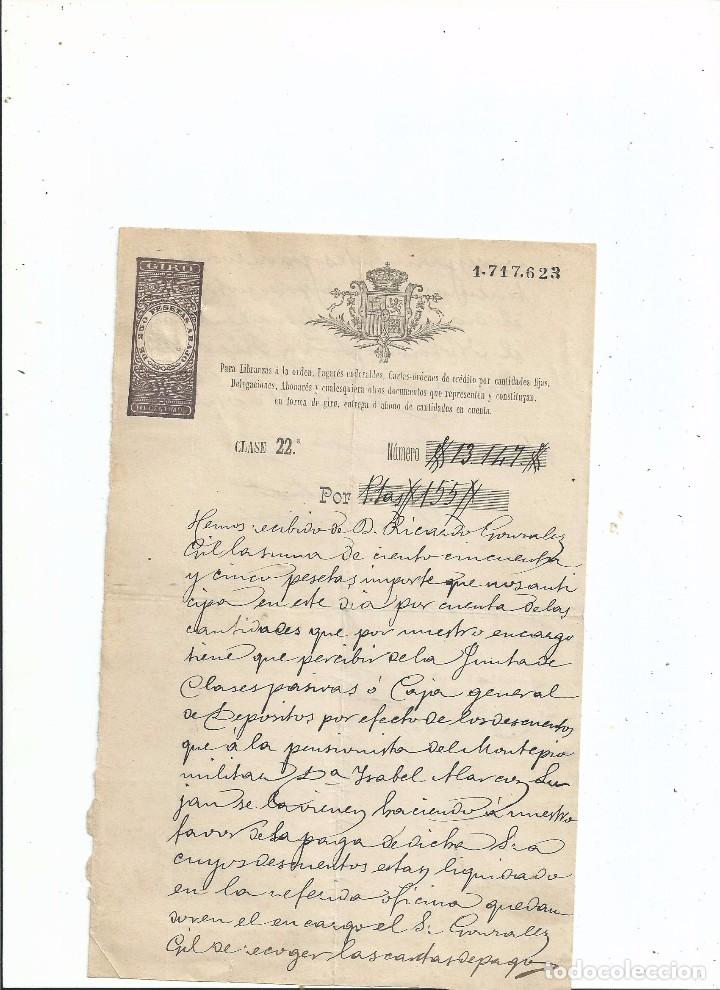 1.717.623
GIRO
DE 250 PESETAS ABAJO
Para Libranzas á la orden, Pagarés endosables, Cartas-órdenes de crédito por cantidades fijas,
Delegaciones, Abonarés y cualesquiera otros documentos que representen y constituyan,
en forma de giro, entrega ó abono de cantidades en cuenta.
CLASE 22.ª
Número 13147
Por Ptas 155
Hemos recibido de D. Ricardo Gonzalez
Gil la suma de ciento cincuenta
y cinco pesetas importe que nos anti
cipa en este dia por cuenta de las
cantidades que por nuestro encargo
tiene que percibir de la Junta de
Clases pasivas ó Caja general
de Depositos por efecto de los descuentos
que á la pensionista del Montepio
militar Dª Isabel Alarcon Lu
jan se la vienen haciendo á nuestro
favor de la paga de dicha Sra
cuyos descuentos estan liquidado
en la referida oficina quedan
do en el encargo el Sr Gonzalez
Gil de recoger las cartas de pago
todocoleccion